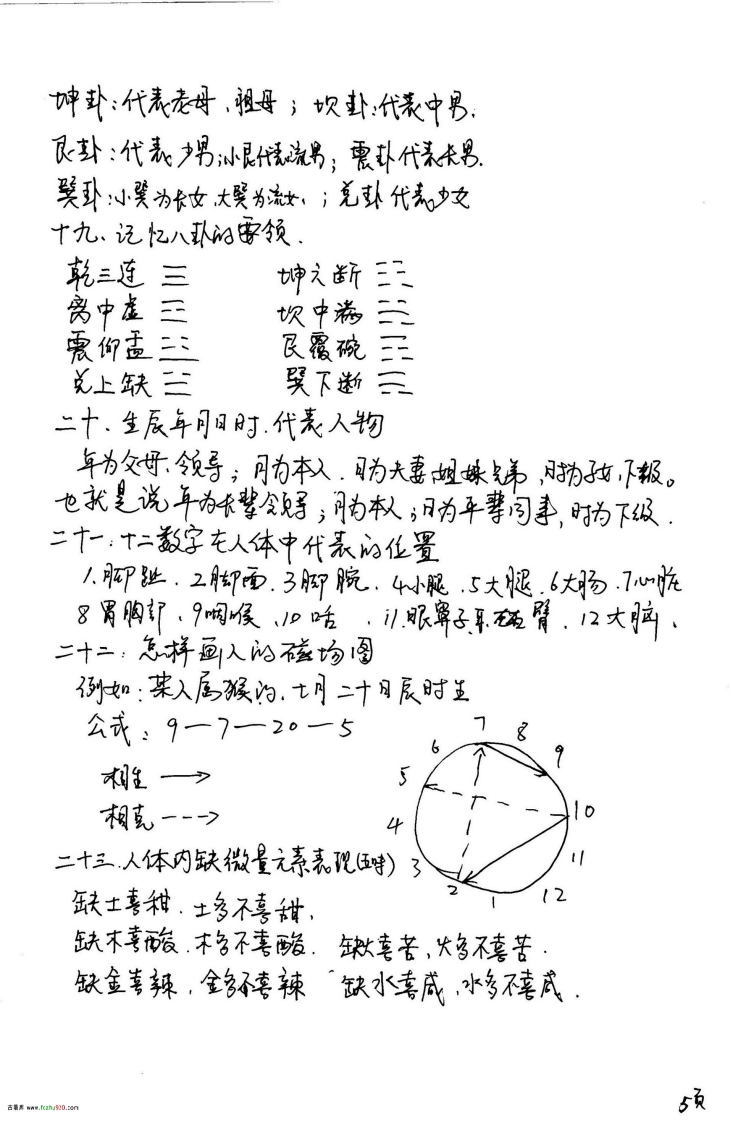 坤卦:代表老母、祖母；坎卦:代表中男.
艮卦:代表少男;小艮代表流男；震卦代表长男.
巽卦:小巽为长女,大巽为流女、；兑卦代表少女
十九、记忆八卦的要领.
乾三连 ☰ 坤六断 ☷
离中虚 ☲ 坎中满 ☵
震仰盂 ☳ 艮覆碗 ☶
兑上缺 ☱ 巽下断 ☴
二十、生辰年月日时.代表人物
年为父母、领导；月为本人.日为夫妻姐妹兄弟,时为子女,下级。
也就是说年为长辈领导；月为本人；日为平辈同事,时为下级.
二十一.十二数字在人体中代表的位置
1.脚趾.2脚面.3脚腕.4小腿.5大腿.6大肠.7心脏
8胃胸部、9咽喉、10舌、11.眼鼻子耳臂.12大脑、
二十二:怎样画人的磁场图
例如:某人属猴的.七月二十日辰时生
公式:9—7—20—5
相生 ⟶
相克 ---→
7
6 8
5 9
4 10
3 11
2 1 12
二十三.人体内缺微量元素表现(五味)
缺土喜甜.土多不喜甜,
缺木喜酸.木多不喜酸.缺火喜苦,火多不喜苦.
缺金喜辣,金多不喜辣 缺水喜咸,水多不喜咸.
古易库 www.fczhu920.com
5页